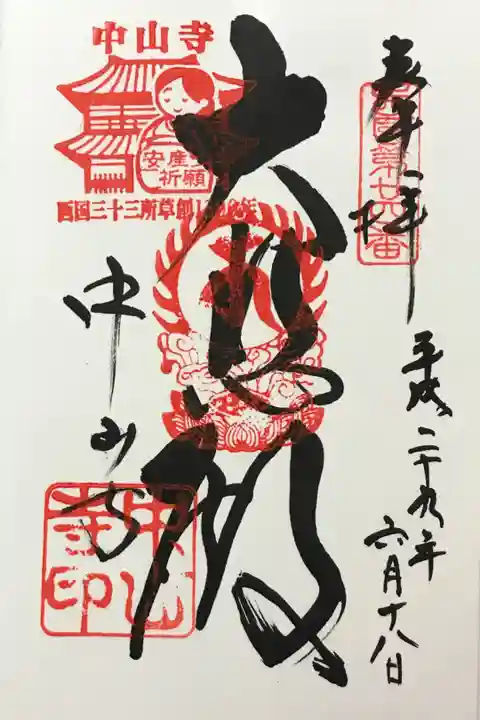 奉拝
西国第廿四番
平成二十九年六月十八日
大悲殿
中山寺
安産
祈願
西国三十三所草創1300年
中山寺
中山寺印